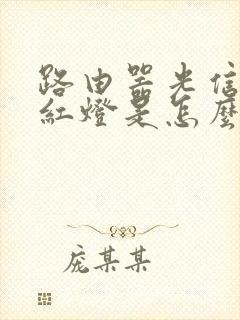 路由器光信
紅燈是怎麼
庞某某